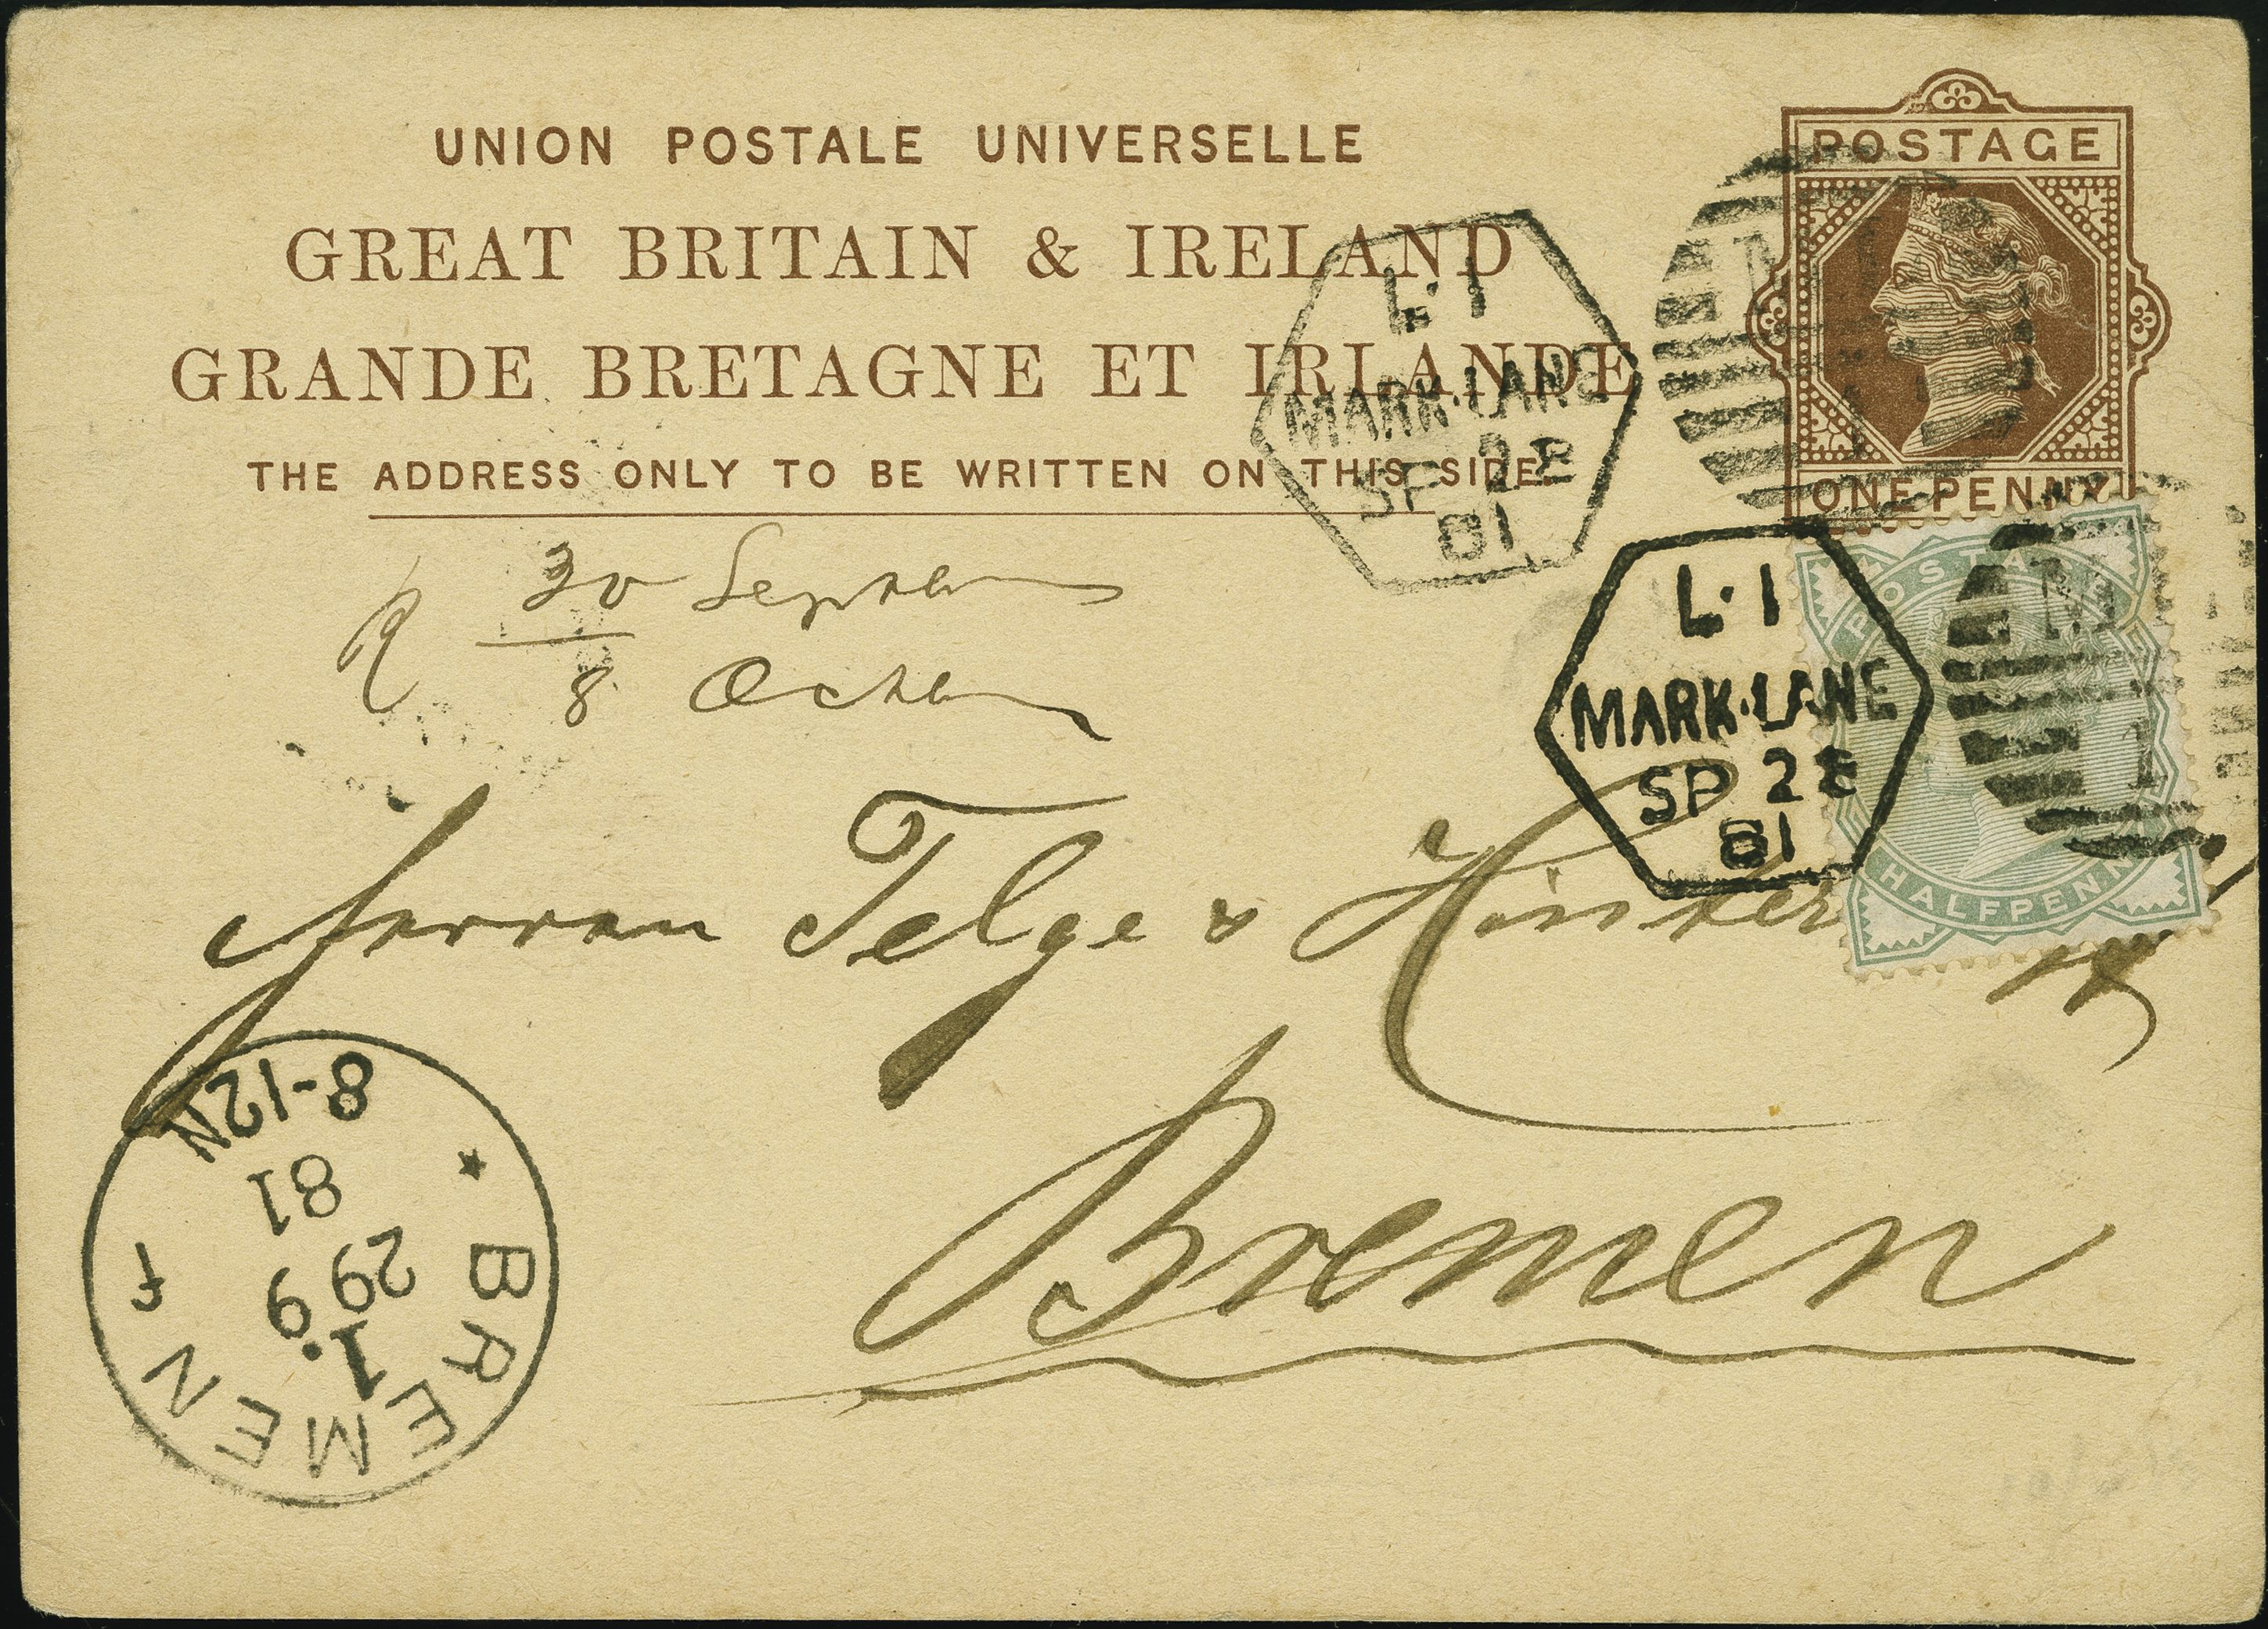 UNION POSTALE UNIVERSELLE
GREAT BRITAIN & IRELAND
GRANDE BRETAGNE ET IRLANDE
THE ADDRESS ONLY TO BE WRITTEN ON THIS SIDE.
POSTAGE
ONE PENNY
L·1
MARK·LANE
SP 28
81
L·1
MARK·LANE
SP 28
81
POSTAGE
HALFPENNY
R 30 September
8 October
Herren Telge &
Bremen
BREMEN
1.
29 9
81
8-12N
F